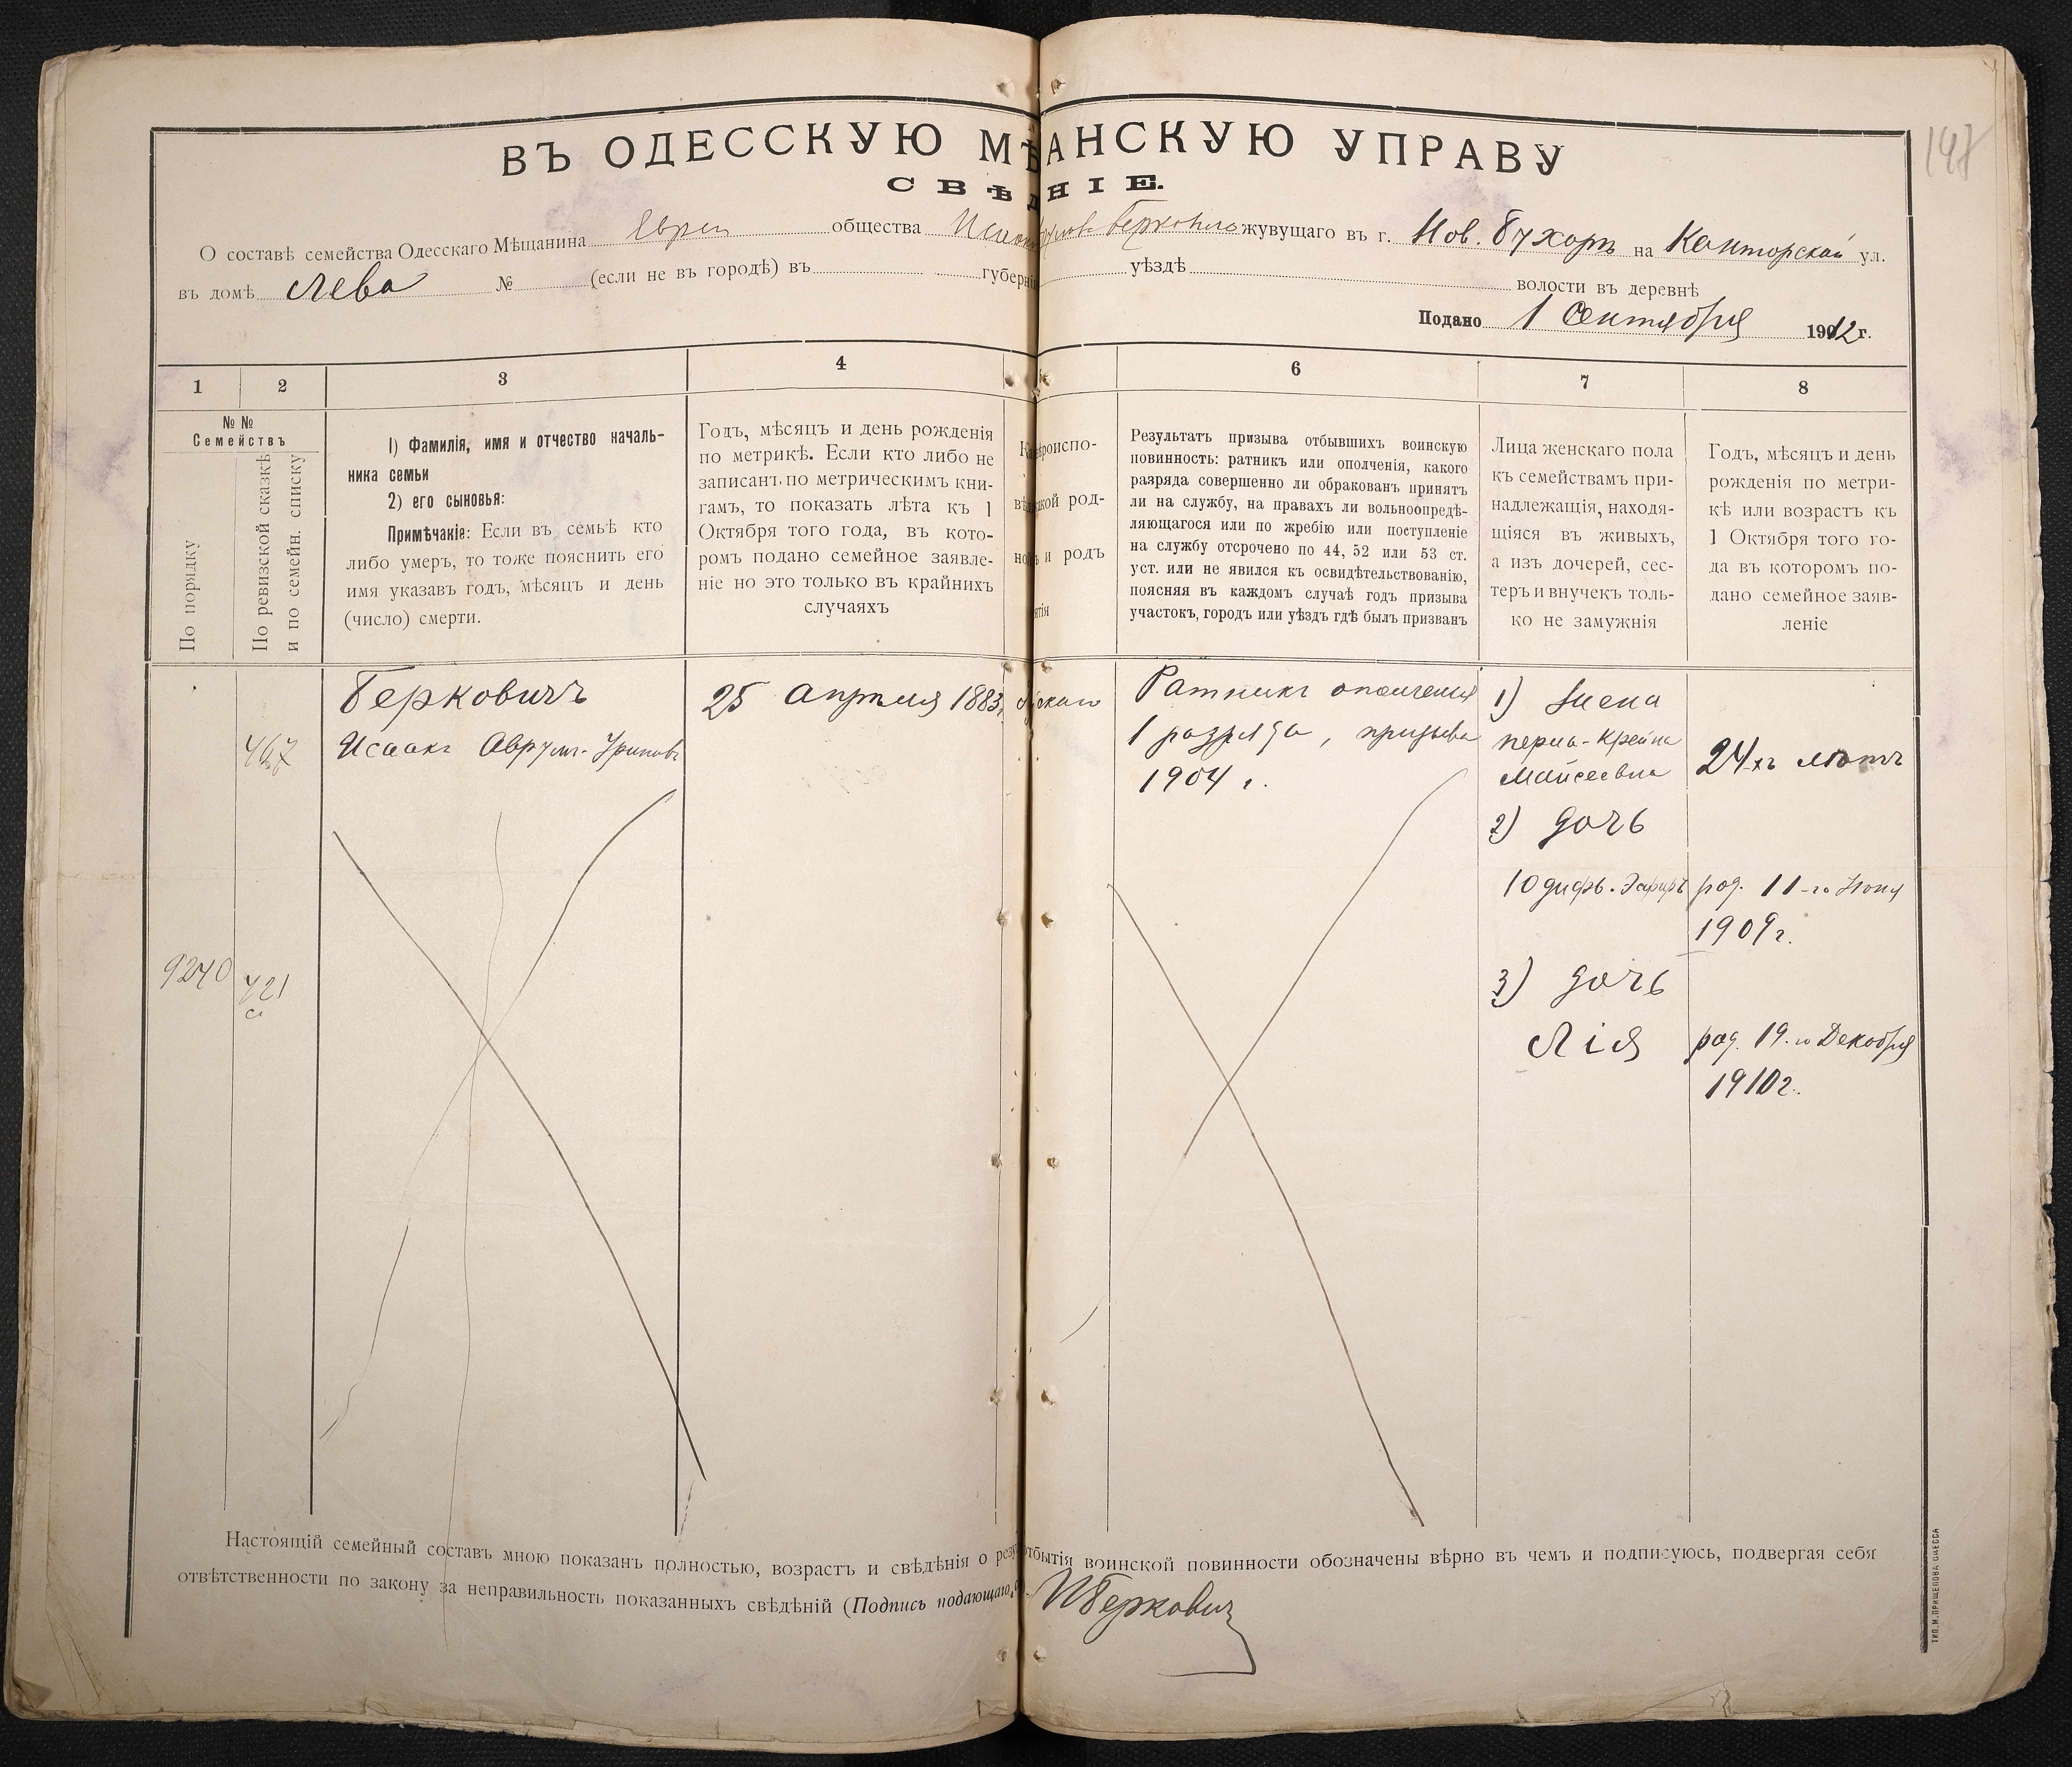 147
ВЪ ОДЕССКУЮ МѢ АНСКУЮ УПРАВУ
СВѢД НІЕ.
О составѣ семейства Одесскаго Мѣщанина Еврей общества Исаак Берковича жувущаго въ г. Нов. Бухорѣ на Конторской ул.
въ домѣ Лева № (если не въ городѣ) въ губерні уѣздѣ волости въ деревнѣ
Подано 1 Сентября 1912 г.
1 2 3 4 6 7 8
№ №
Семействъ
По порядку
По ревизской сказкѣ
и по семейн. списку
1) Фамилія, имя и отчество началь-
ника семьи
2) его сыновья:
Примѣчаніе: Если въ семьѣ кто
либо умеръ, то тоже пояснить его
имя указавъ годъ, мѣсяцъ и день
(число) смерти.
Годъ, мѣсяцъ и день рожденія
по метрикѣ. Если кто либо не
записанъ по метрическимъ кни-
гамъ, то показать лѣта къ 1
Октября того года, въ кото-
ромъ подано семейное заявле-
ніе но это только въ крайнихъ
случаяхъ
роиспо-
кой род-
и родъ
тія
Результатъ призыва отбывшихъ воинскую
повинность: ратникъ или ополченія, какого
разряда совершенно ли обракованъ принятъ
ли на службу, на правахъ ли вольноопредѣ-
ляющагося или по жребію или поступленіе
на службу отсрочено по 44, 52 или 53 ст.
уст. или не явился къ освидѣтельствованію,
поясняя въ каждомъ случаѣ годъ призыва
участокъ, городъ или уѣздъ гдѣ былъ призванъ
Лица женскаго пола
къ семействамъ при-
надлежащія, находя-
щіяся въ живыхъ,
а изъ дочерей, сес-
теръ и внучекъ толь-
ко не замужнія
Годъ, мѣсяцъ и день
рожденія по метри-
кѣ или возрастъ къ
1 Октября того го-
да въ котором по-
дано семейное заяв-
леніе
467
Берковичъ
Исаакъ Аврум-
25 апрѣля 1883
Ратникъ ополченія
1 разряда, призыва
1904 г.
1) Жена
Перла-Крейна
Мойсеевна
24-хъ лѣтъ
2) дочь
Юдифь-Эсфирь
род. 11-го Іюня
1909 г.
9240
421
с
3) дочь
Лія
род. 19-го Декабря
1910 г.
Настоящій семейный составъ мною показанъ полностью, возрастъ и свѣдѣнія о рез тбытія воинской повинности обозначены вѣрно въ чемъ и подписуюсь, подвергая себя
отвѣтственности по закону за неправильность показанныхъ свѣдѣній (Подпись подающаго ИБеркович
ТИП. М. ПРИЩЕПОВА ОДЕССА